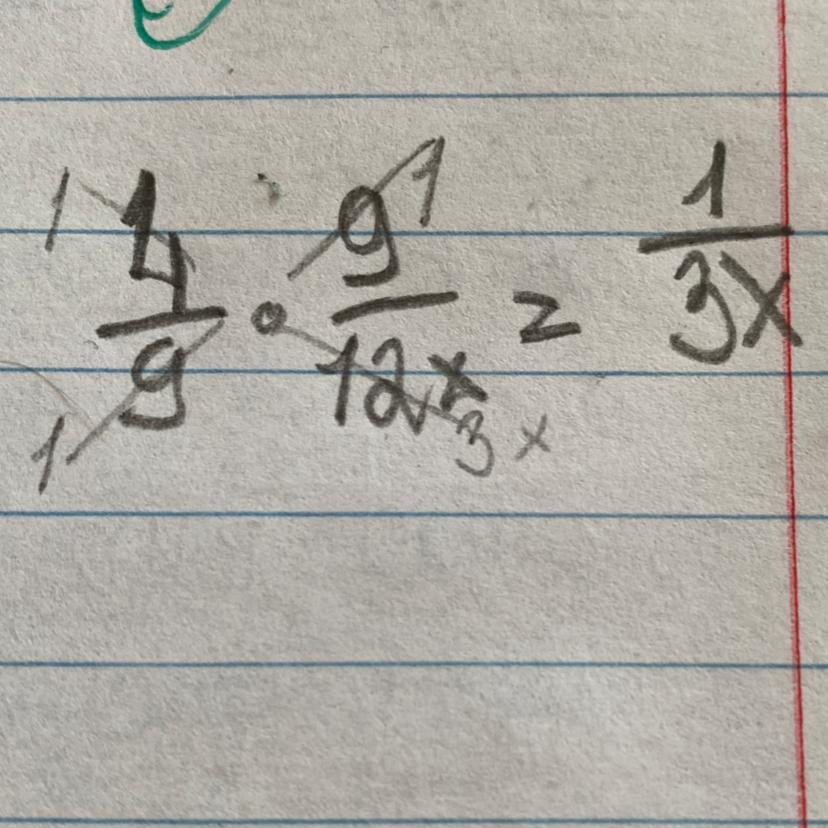 4/9 · 9/12x = 1/3x
1 1
1 3x